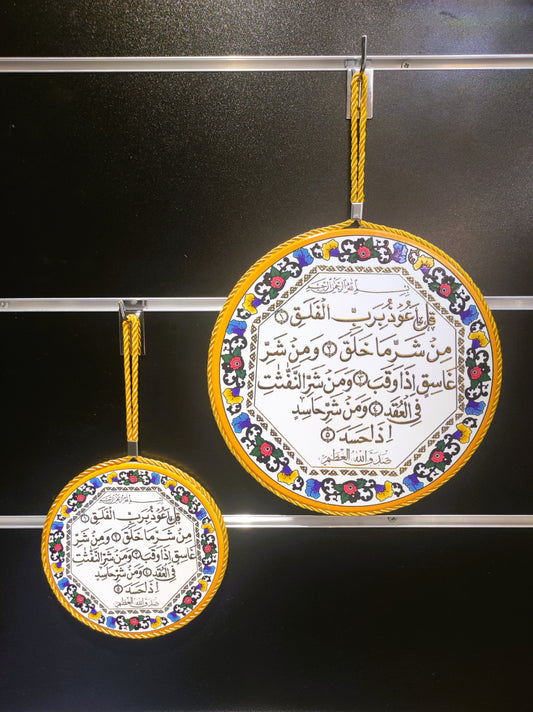 بسم الله الرحمن الرحيم
قُلْ أَعُوذُ بِرَبِّ الْفَلَقِ ١
مِنْ شَرِّ مَا خَلَقَ ٢ وَمِنْ شَرِّ
غَاسِقٍ إِذَا وَقَبَ ٣ وَمِنْ شَرِّ النَّفَّٰثَٰتِ
فِي الْعُقَدِ ٤ وَمِنْ شَرِّ حَاسِدٍ
إِذَا حَسَدَ ٥
صدق الله العظيم
بسم الله الرحمن الرحيم
قُلْ أَعُوذُ بِرَبِّ الْفَلَقِ ١
مِنْ شَرِّ مَا خَلَقَ ٢ وَمِنْ شَرِّ
غَاسِقٍ إِذَا وَقَبَ ٣ وَمِنْ شَرِّ النَّفَّٰثَٰتِ
فِي الْعُقَدِ ٤ وَمِنْ شَرِّ حَاسِدٍ
إِذَا حَسَدَ ٥
صدق الله العظيم